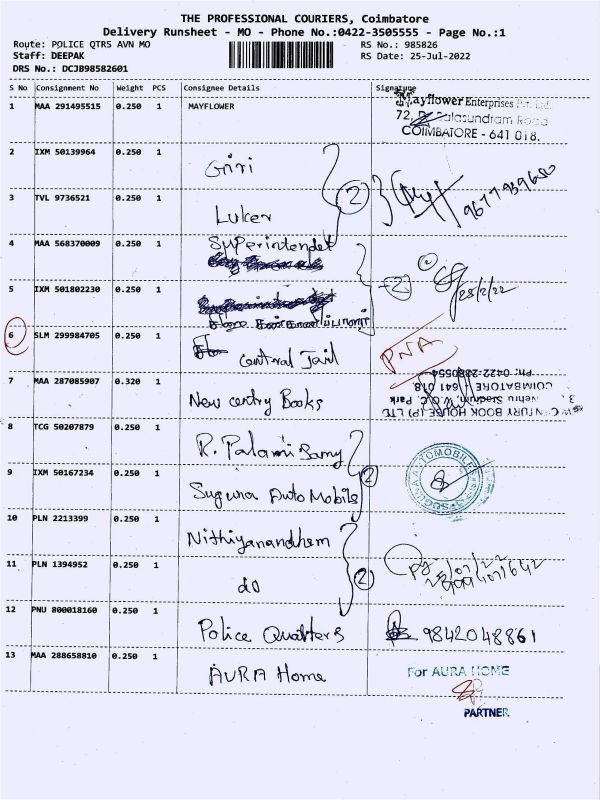 THE PROFESSIONAL COURIERS, Coimbatore
Delivery Runsheet - MO - Phone No.:0422-3505555 - Page No.:1
Route: POLICE QTRS AVN MO
RS No.: 985826
Staff: DEEPAK
RS Date: 25-Jul-2022
DRS No.: DCJB98582601
S No Consignment No Weight PCS Consignee Details Signature
1 MAA 291495515 0.250 1 MAYFLOWER
Mayflower Enterprises Pvt. Ltd.
72, Balasundram Road
COIMBATORE - 641 018.
2 IXM 50139964 0.250 1 Giri
3 TVL 9736521 0.250 1 Luker
2
4 MAA 568370009 0.250 1 Superintendet
5 IXM 501802230 0.250 1
2
6 SLM 299984705 0.250 1 central Jail PNA
7 MAA 287085907 0.320 1 New centry Books
NEW CENTURY BOOK HOUSE (P) LTD
Nehru Stadium, V.O.C. Park
COIMBATORE - 641 018
8 TCG 50207879 0.250 1 R. Palami Samy
9 IXM 50167234 0.250 1 Suguna Auto Mobils
2
SUGUNA AUTOMOBILES
10 PLN 2213399 0.250 1 Nithiyanandhem
11 PLN 1394952 0.250 1 do
2
12 PNU 800018160 0.250 1 Police Quatters 9842048861
13 MAA 288658810 0.250 1 AURA Home
For AURA HOME
PARTNER